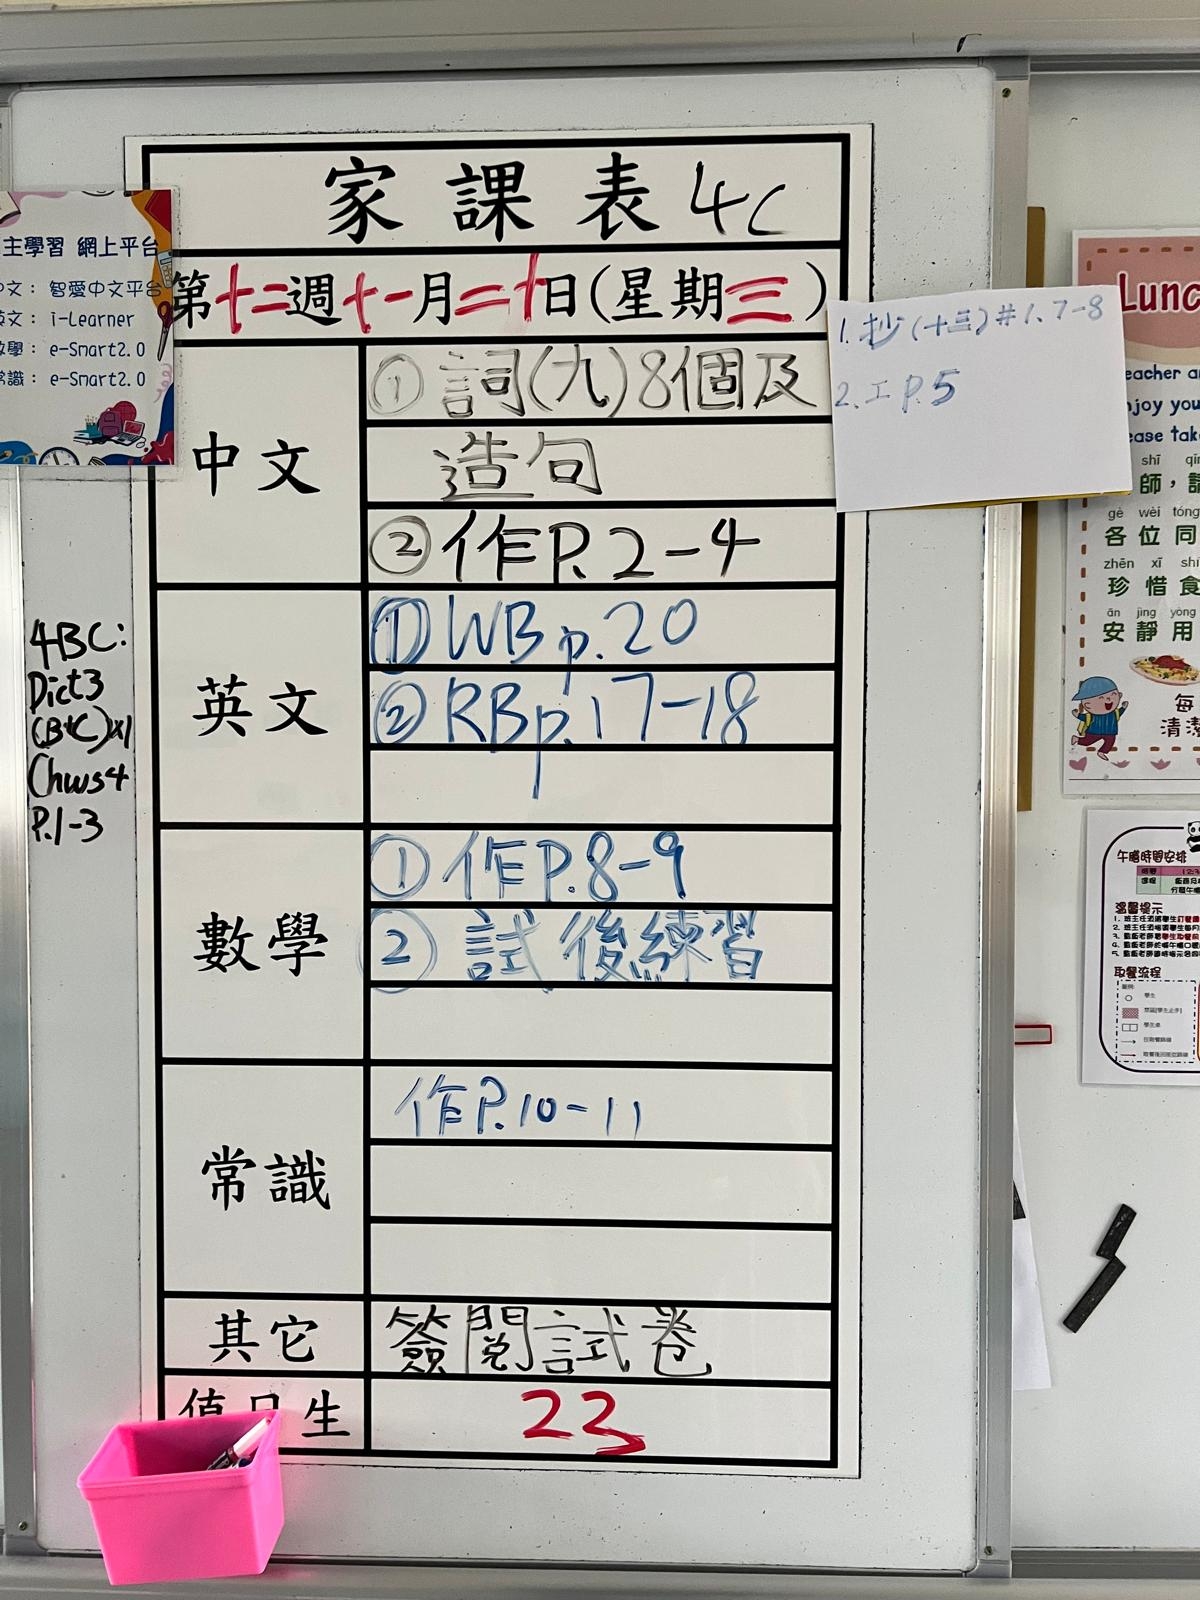 家課表 4C
第十二週十一月二十日(星期三)
中文
① 詞(九)8個及
造句
② 作P.2-4
英文
① WB p.20
② RB p.17-18
數學
① 作P.8-9
② 試後練習
常識
作P.10-11
其它
簽閱試卷
值日生
23
主學習 網上平台
中文： 智愛中文平台
英文： i-Learner
數學： e-Smart2.0
常識： e-Smart2.0
4BC:
Dict3
(B+C)x1
Chws4
P.1-3
1. 抄(十三)#1.7-8
2. 工 P.5
Lunc
eacher an
njoy you
ease take
shī
師，請
gè wèi tóng
各位同
zhēn xī shí
珍惜食
ān jìng yòng
安靜用
每
清潔
午膳時間安排
溫馨提示
取餐流程
學生